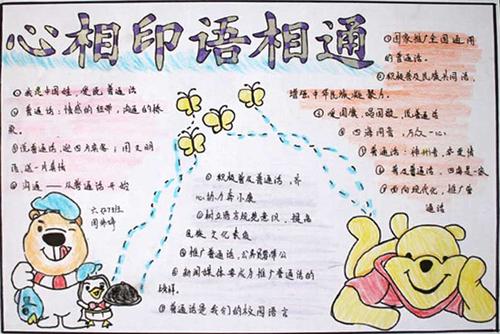 心相印语相通
①我是中国娃,爱说普通话
②普通话:情感的纽带,沟通的桥
梁。
③说普通话,迎四方宾客;用文明
语,送一片真情
④沟通——从普通话开始
①积极普及普通话,齐
心协力奔小康
②树立语言规范意识,提高
民族文化素质
③推广普通话,公务员带
④新闻媒体要成为推广普通话的
榜样。
⑤普通话是我们的校园语言
①国家推广全国通用
的普通话。
②积极普及民族共同语,
增强中华民族凝聚力。
③爱国旗,唱国歌,说普通话
④四海同音,万众一心
⑤普通话:神州音,华夏情
⑥普及普通话,四海是一家
⑦面向现代化,推广普
通话